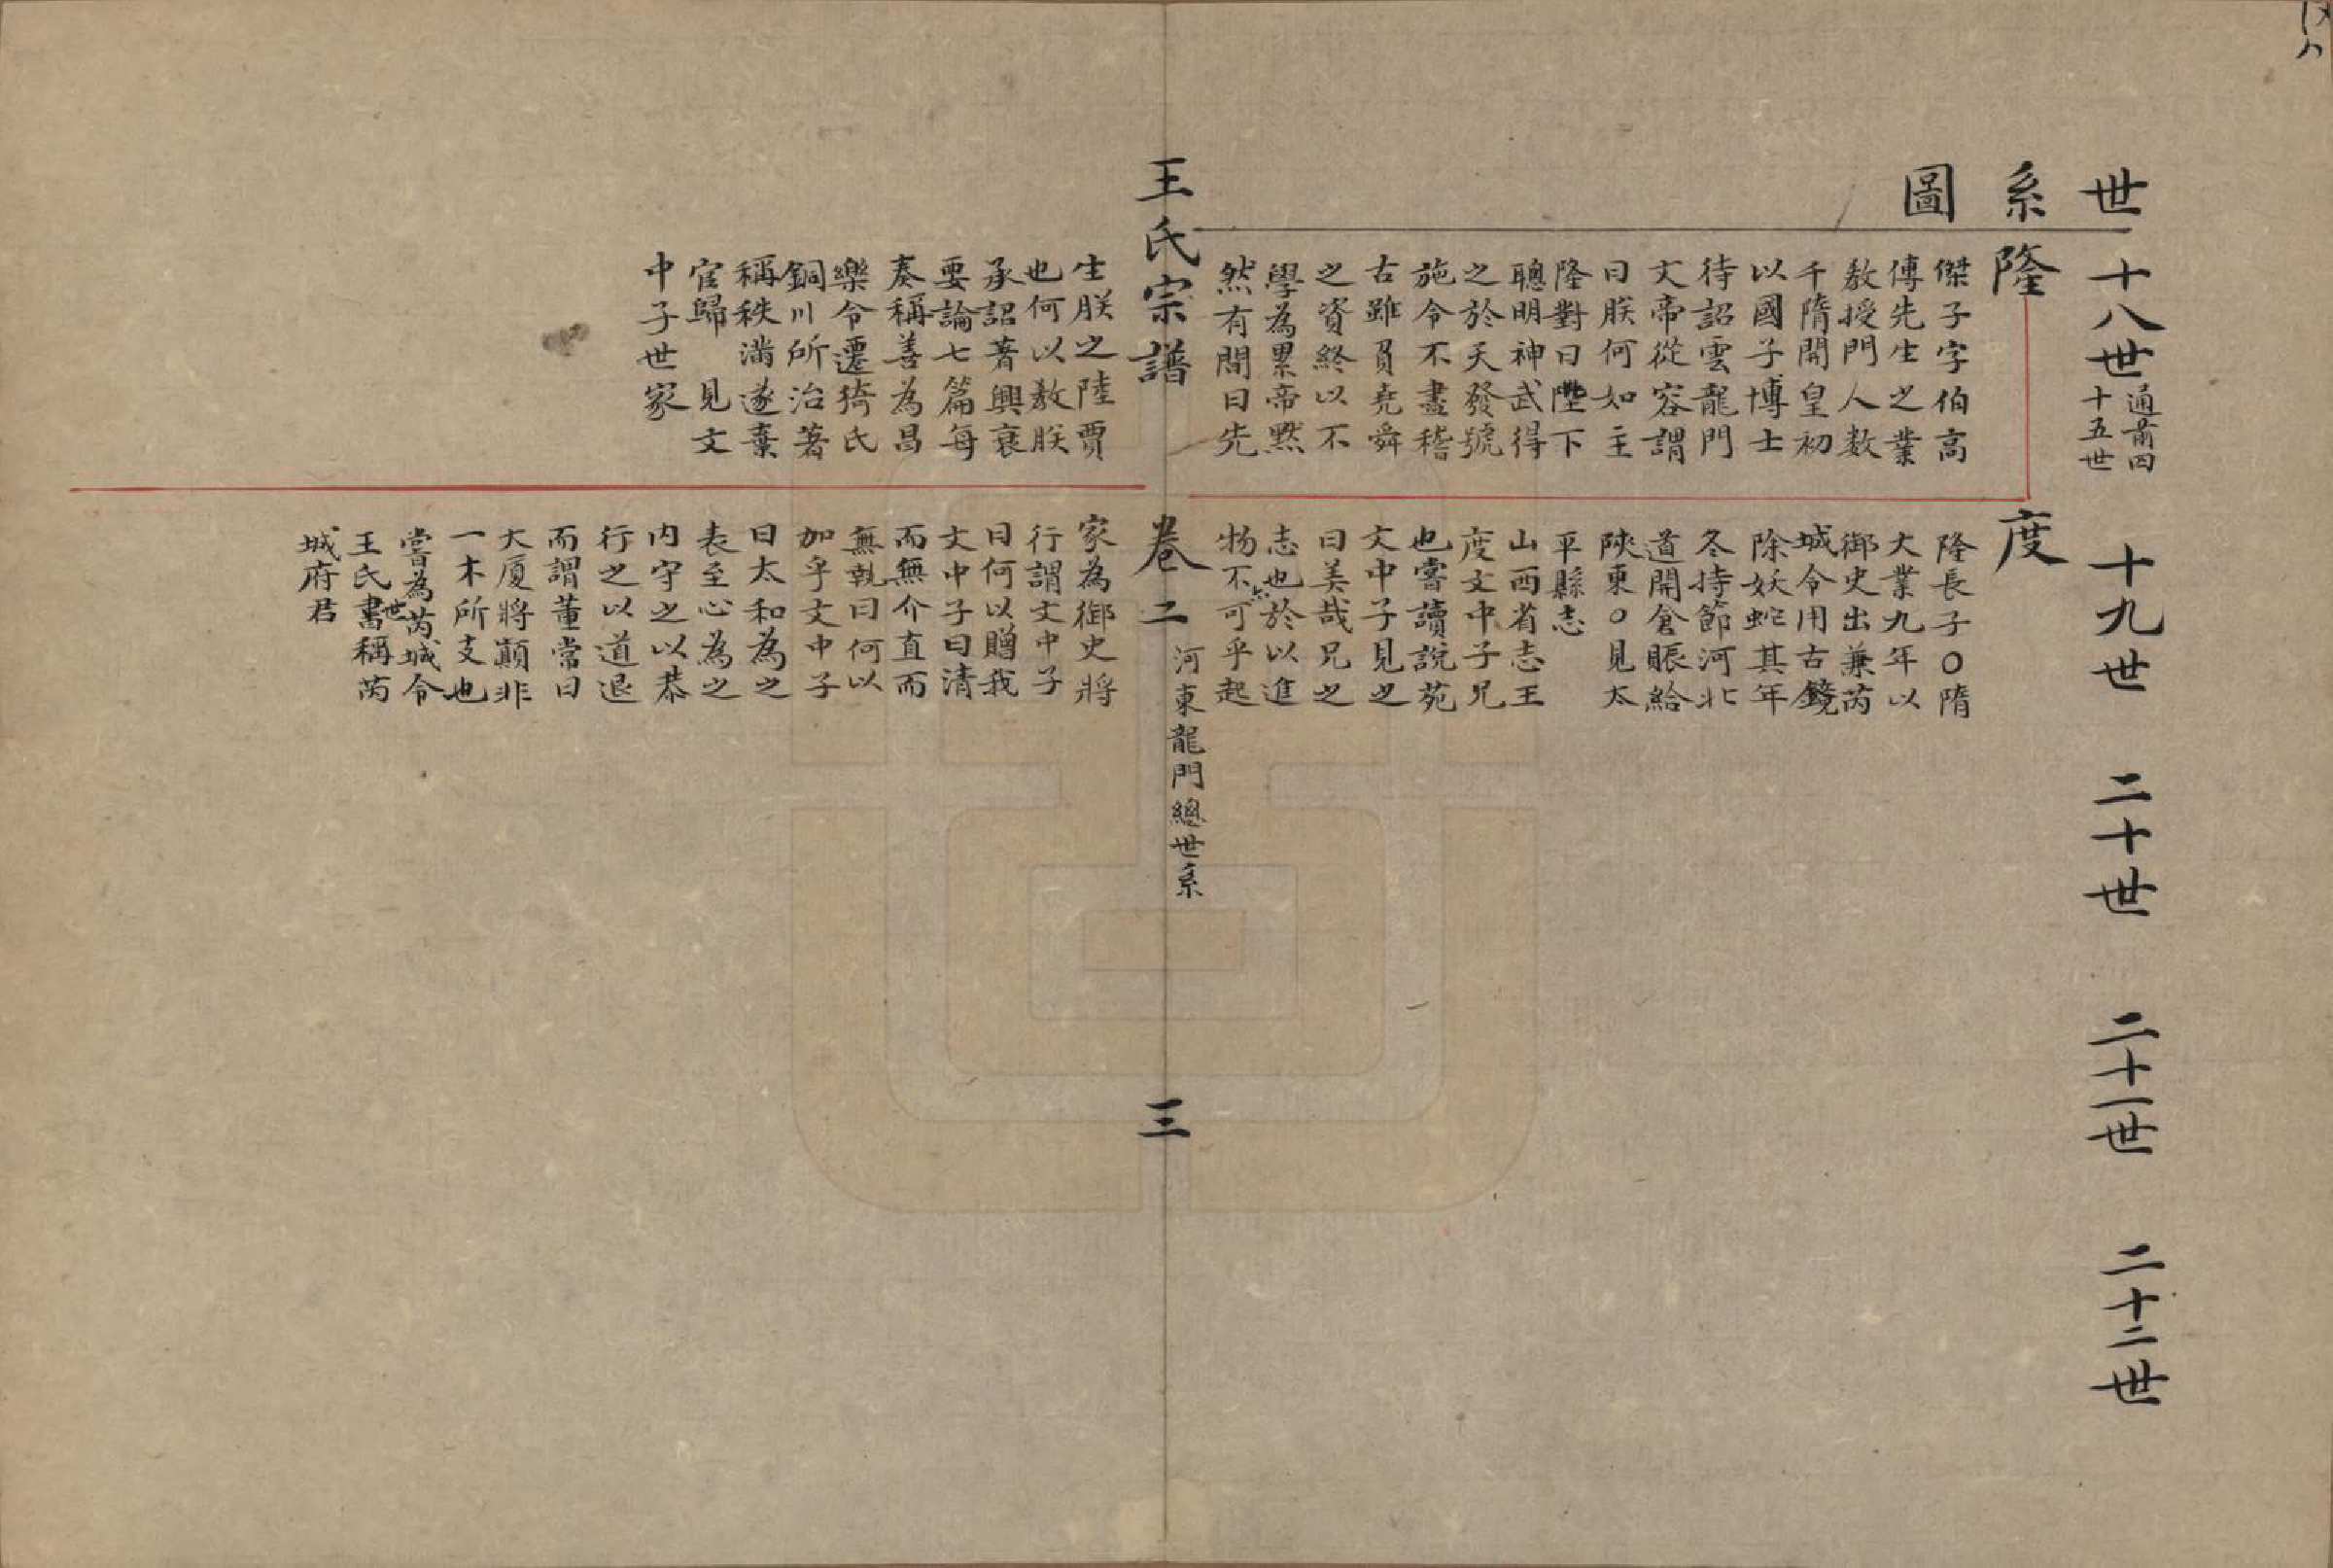 世系圖
十八世
通前四
十五世
十九世
二十世
二十一世
二十二世
隆
傑子字伯高
傳先生之業
教授門人數
千隋開皇初
以國子博士
待詔雲龍門
文帝從容謂
曰朕何如主
隆對曰陛下
聰明神武得
之於天發號
施令不盡稽
古雖負堯舜
之資終以不
學為累帝默
然有間曰先
生朕之陸賈
也何以教朕
承詔著興衰
要論七篇每
奏稱善為昌
樂令遷猗氏
銅川所治著
稱秩滿遂棄
官歸 見文
中子世家
度
隆長子○隋
大業九年以
御史出兼芮
城令用古鏡
除妖蛇其年
冬持節河北
道開倉賑給
陝東○見太
平縣志
山西省志王
度文中子兄
也嘗讀說苑
文中子見之
曰美哉兄之
志也於以進
物不亦可乎起
家為御史將
行謂文中子
曰何以贈我
文中子曰清
而無介直而
無執曰何以
加乎文中子
曰太和為之
表至心為之
內守之以恭
行之以道退
而謂董常曰
大廈將顛非
一木所支也
嘗為芮城令
王氏世書稱芮
城府君
王氏宗譜
卷二
河東龍門總世系
三